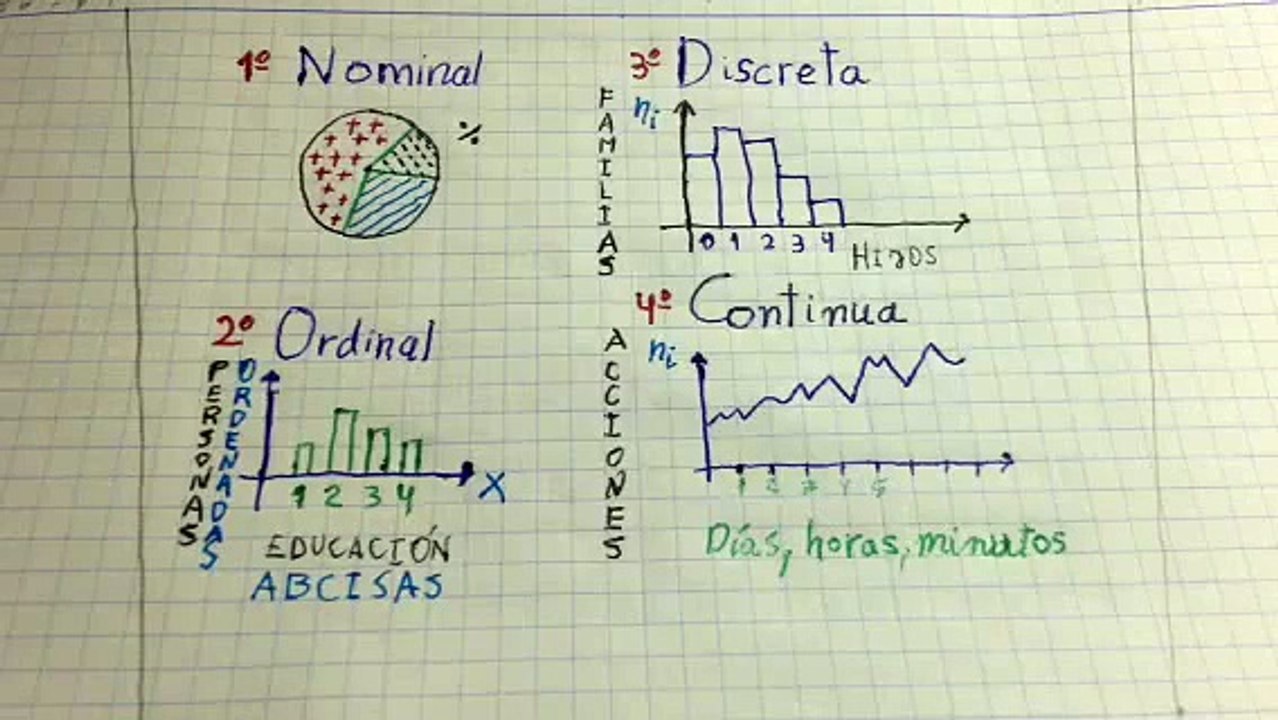 1º Nominal
%
2º Ordinal
PERSONAS
ORDENADAS
1 2 3 4
X
EDUCACIÓN
ABCISAS
3º Discreta
FAMILIAS
ni
0 1 2 3 4
HIJOS
4º Continua
ACCIONES
ni
1 2 3 4 5
Días, horas, minutos